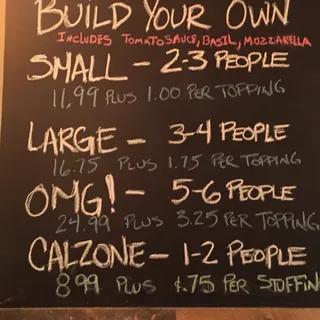 BUILD YOUR OWN
INCLUDES TOMATO SAUCE, BASIL, MOZZARELLA
SMALL - 2-3 PEOPLE
11.99 PLUS 1.00 PER TOPPING
LARGE - 3-4 PEOPLE
16.75 PLUS 1.75 PER TOPPING
OMG! - 5-6 PEOPLE
24.99 PLUS 3.25 PER TOPPING
CALZONE - 1-2 PEOPLE
8.99 PLUS ¢.75 PER STUFFIN